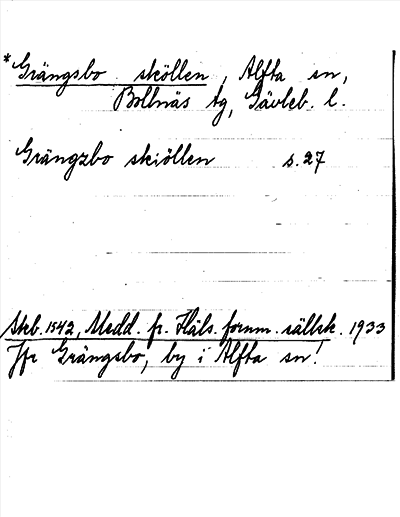 *Grängsbo sköllen, Alfta sn,
Bollnäs tg, Gävleb. l.
Grängzbo skiöllen s. 27
Skb. 1542, Medd. fr. Häls. fornm. sällsk. 1933
Jfr Grängsbo, by i Alfta sn!